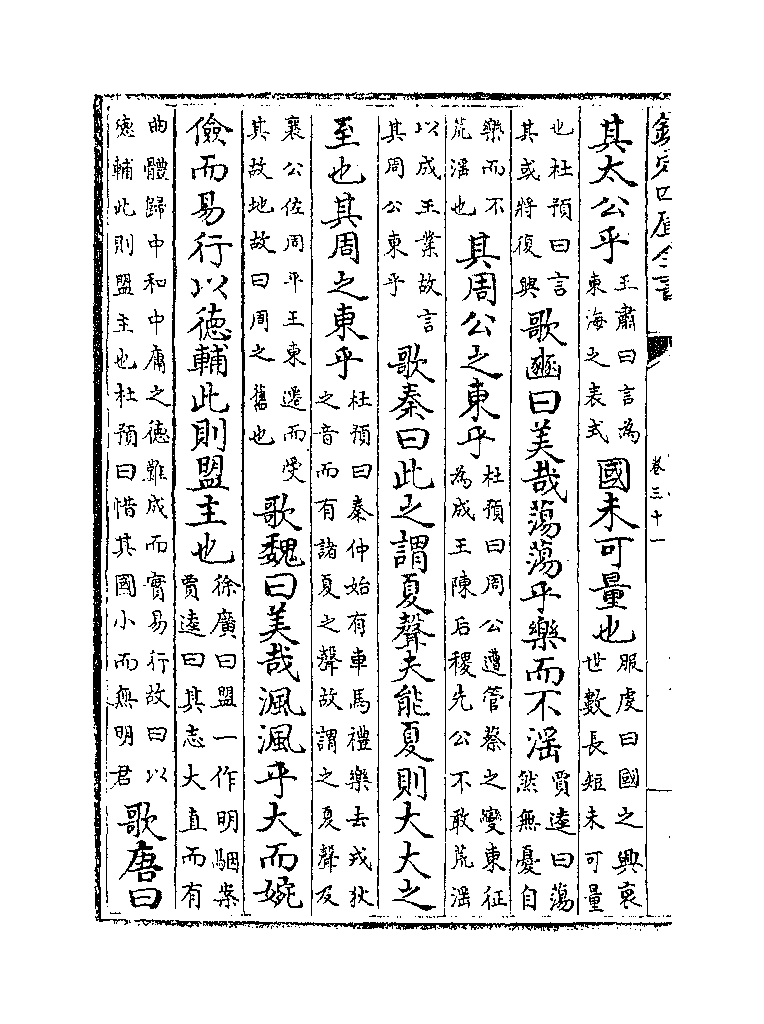 欽定四庫全書 卷三十一
其太公乎王肅曰言為東海之表式國未可量也服虔曰國之興衰世數長短未可量
也杜預曰言其或將復興歌豳曰美哉蕩蕩乎樂而不滛賈逵曰蕩然無憂自
樂而不荒滛也其周公之東乎杜預曰周公遭管蔡之變東征為成王陳后稷先公不敢荒滛
以成王業故言其周公東乎歌秦曰此之謂夏聲夫能夏則大大之
至也其周之東乎杜預曰秦仲始有車馬禮樂去戎狄之音而有諸夏之聲故謂之夏聲及
襄公佐周平王東遷而受其故地故曰周之舊也歌魏曰美哉渢渢乎大而婉
儉而易行以德輔此則盟主也徐廣曰盟一作明駰案賈逵曰其志大直而有
曲體歸中和中庸之德難成而實易行故曰以德輔此則盟主也杜預曰惜其國小而無明君歌唐曰